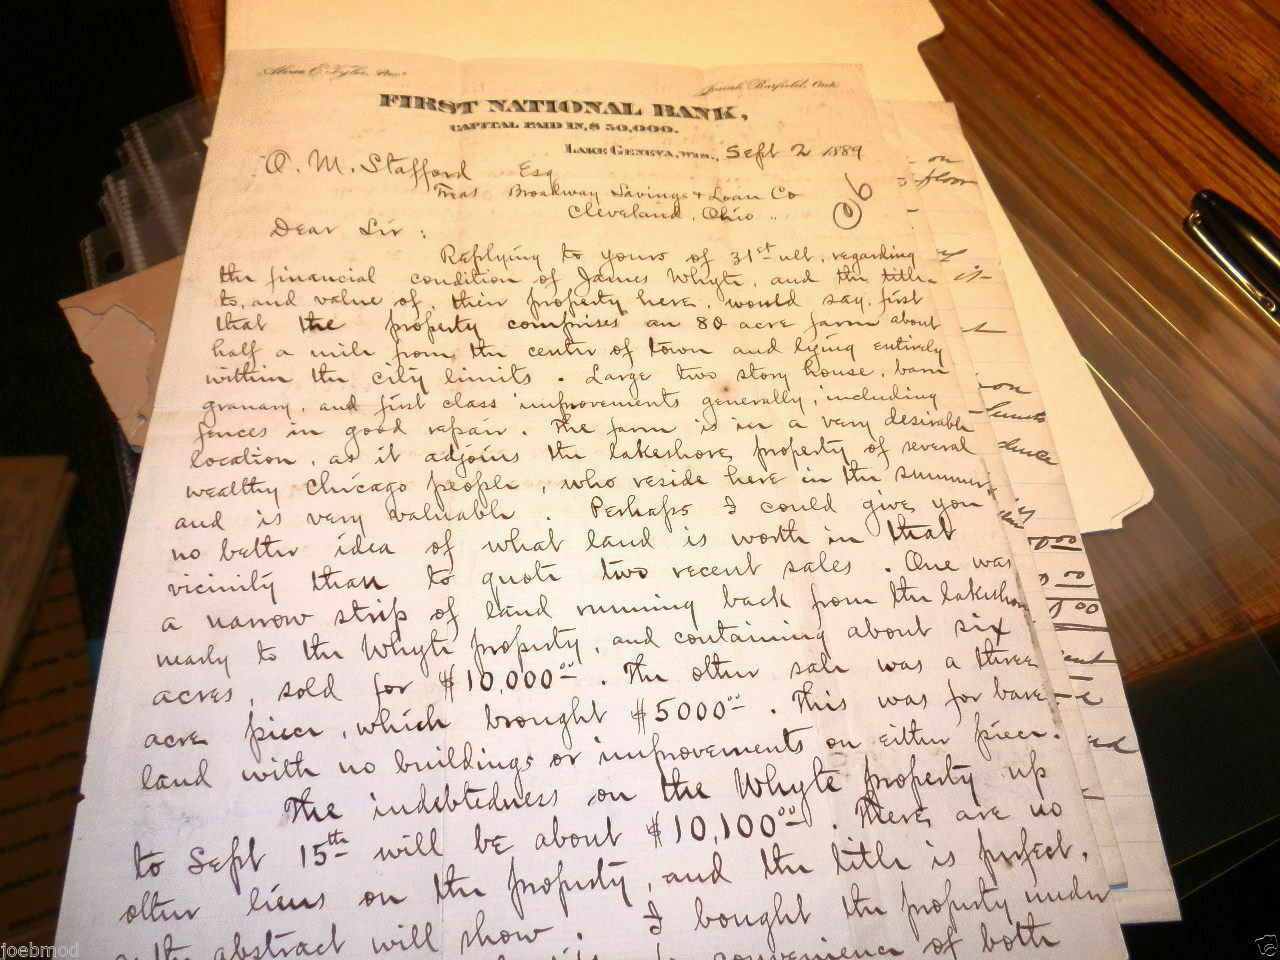 FIRST NATIONAL BANK,
CAPITAL PAID IN, $ 50,000.
LAKE GENEVA, WIS., Sept 2 1889
O. M. Stafford Esq
Treas Broadway Savings & Loan Co
Cleveland, Ohio ..
6
Dear Sir:
Replying to yours of 31st ult, regarding
the financial condition of James Whyte, and the title
to, and value of, their property here, would say, first
that the property comprises an 80 acre farm about
half a mile from the center of town and lying entirely
within the city limits. Large two story house, barn
granary, and first class improvements generally, including
fences in good repair. The farm is in a very desirable
location, as it adjoins the lakeshore property of several
wealthy Chicago people, who reside here in the summer
and is very valuable. Perhaps I could give you
no better idea of what land is worth in that
vicinity than to quote two recent sales. One was
a narrow strip of land running back from the lakeshore
nearly to the Whyte property, and containing about six
acres, sold for $10,000.00. The other sale was a three
acre piece, which brought $5000.00. This was for bare
land with no buildings or improvements on either piece.
The indebtedness on the Whyte property up
to Sept 15th will be about $10,100.00. There are no
other liens on the property, and the title is perfect,
as the abstract will show. I bought the property under
convenience of both
on
floor
joebmod